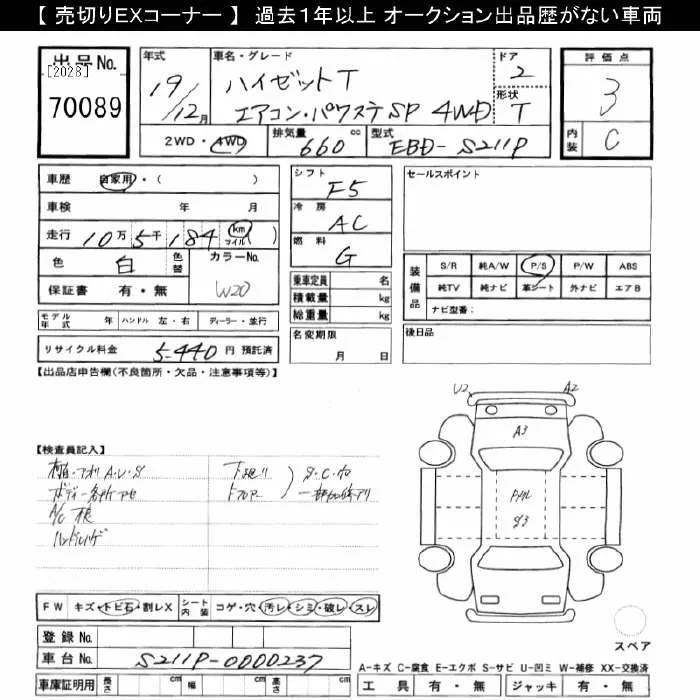 【 売切りEXコーナー 】 過去1年以上 オークション出品歴がない車両
出品No.
[2028]
70089
年式 19/12月
車名・グレード ハイゼットT
エアコン・パワステSP 4WD
ドア 2
形状 T
評価点 3
内装 C
2WD・4WD 排気量 660 cc 型式 EBD-S211P
車歴 自家用・( )
車検 年 月
走行 10万5千184 km マイル( )
色 白 色替 カラーNo. W20
保証書 有・無
モデル年式 年 ハンドル 左・右 ディーラー・並行
リサイクル料金 5-440 円 預託済
シフト F5
冷房 AC
燃料 G
乗車定員 名
積載量 kg
総重量 kg
名変期限 月 日
セールスポイント
装備品
S/R 純A/W P/S P/W ABS
純TV 純ナビ 革シート 外ナビ エアB
ナビ型番:
後日品
【出品店申告欄(不良箇所・欠品・注意事項等)】
【検査員記入】
A・U・S
S・C・ホ
ボディー各所
A/C
U2 A2
A3
S3
FW キズ・トビ石・割レX シート内装 コゲ・穴・汚レ・シミ・破レ・スレ
登録No.
車台No. S211P-0000237
車庫証明用 長さ cm 幅 cm 高さ cm
スペア
A-キズ C-腐食 E-エクボ S-サビ U-凹ミ W-補修 XX-交換済
工具 有・無 ジャッキ 有・無